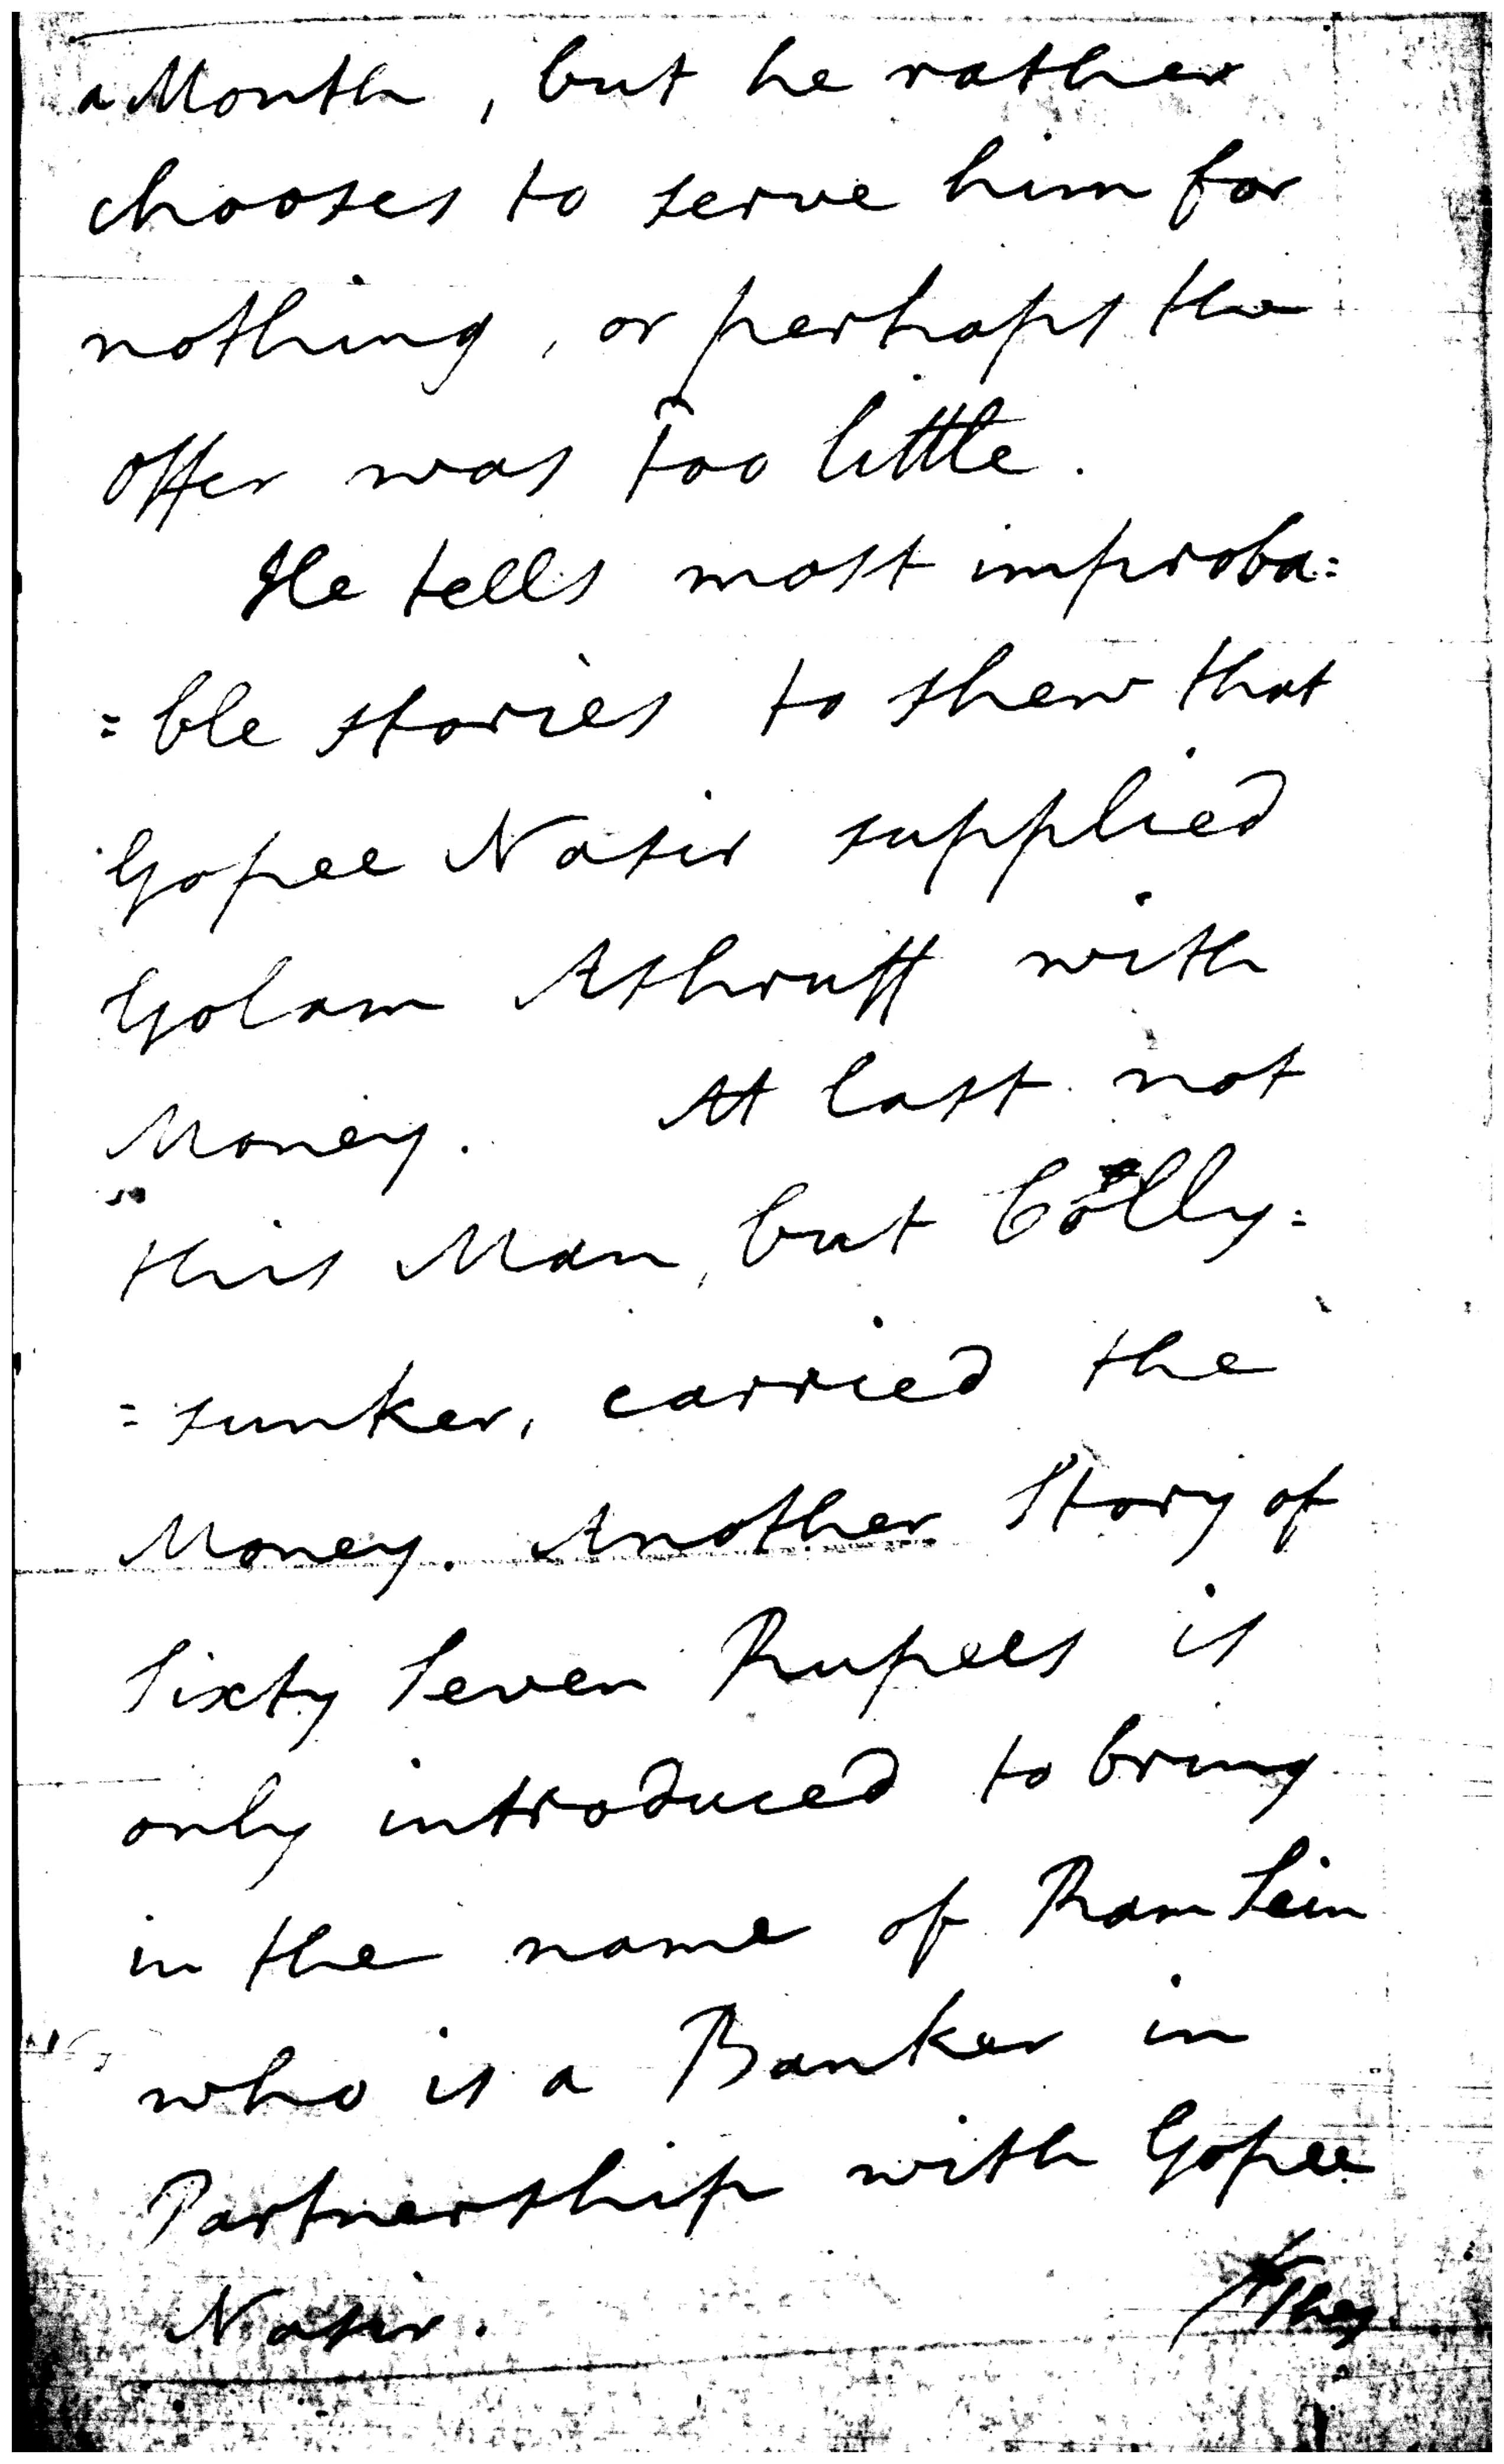 a Month, but he rather
chooses to serve him for
nothing, or perhaps the
offer was too little.
He tells most improba=
=ble stories to shew that
Gopee Nasir supplied
Golam Ashruff with
Money. At last not
this Man, but Colly=
=sunker, carried the
Money. Another Story of
Sixty Seven Rupees is
only introduced to bring
in the name of Ram Sein
who is a Banker in
Partnership with Gopee
Nasir.
They